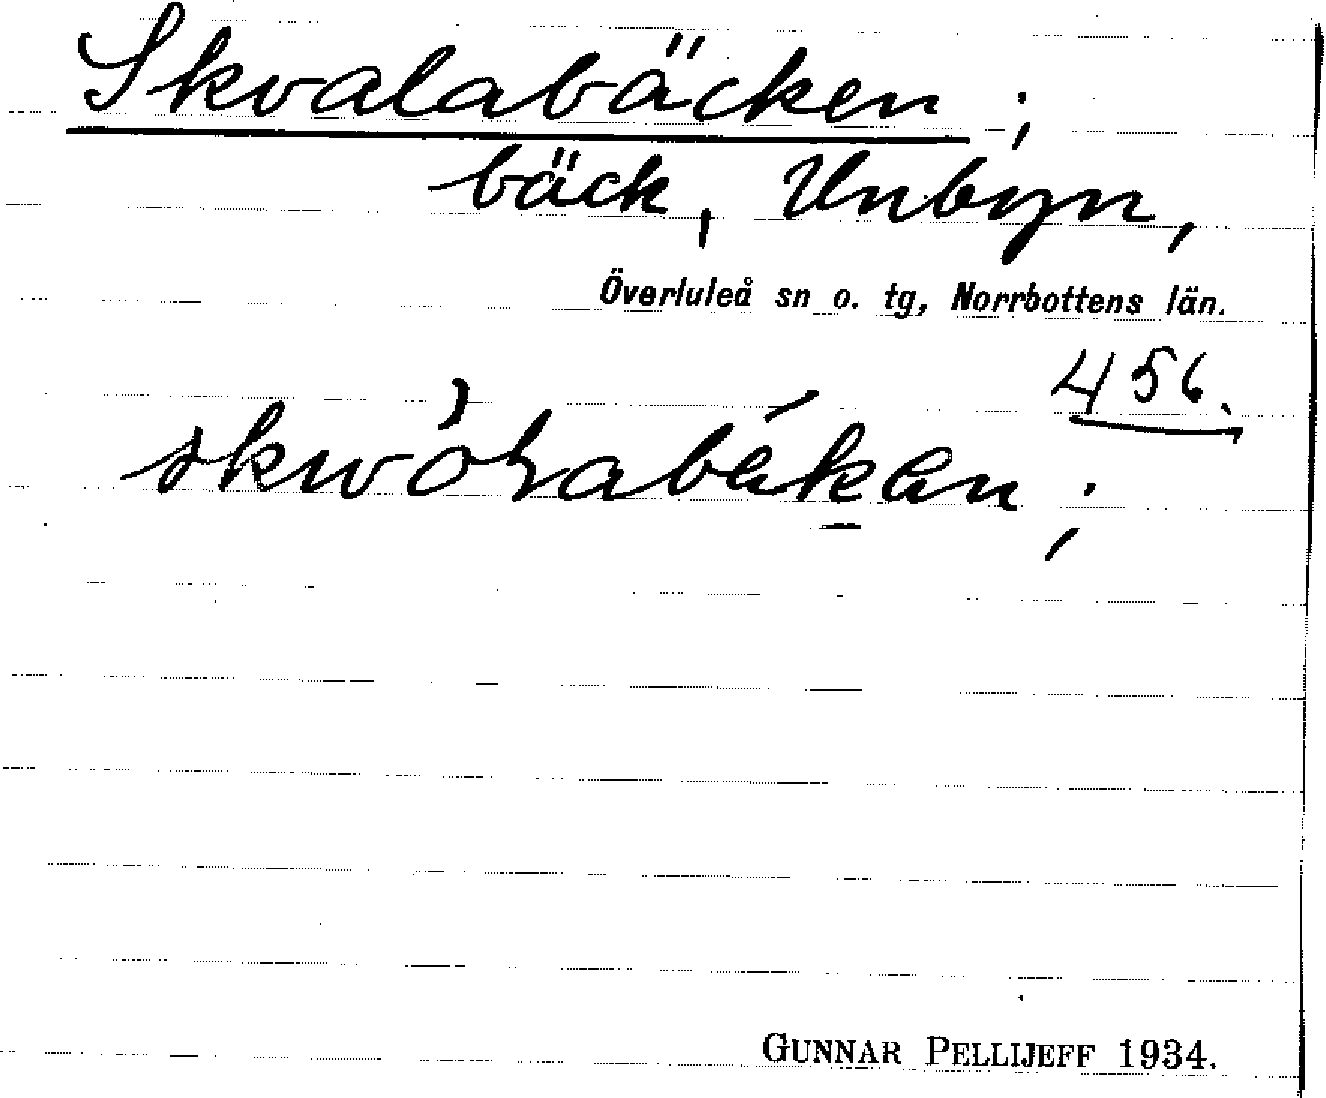 Skvalabäcken;
bäck, Unbyn,
Överluleå sn o. tg, Norrbottens län.
456.
GUNNAR PELLIJEFF 1934.